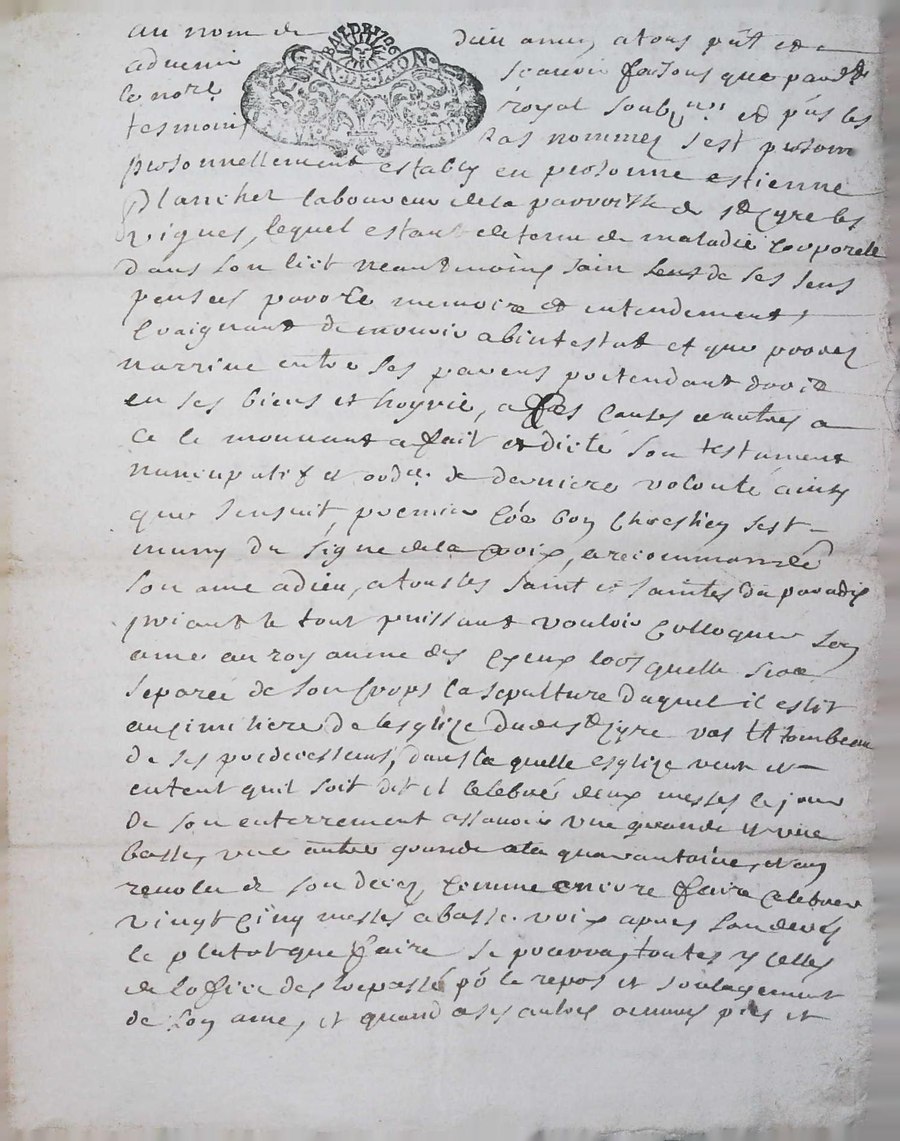 BAT DE 1726
GEN DE LION
au nom de dieu amen a tous pñt et a
advenir scavoir faisons que pard.
le nore royal soub. et pñs les
tesmoins bas nommez s'est presom
personnellement estably en personne estienne
planchet laboureur de la parroisse de st Cyre les
vignes, lequel estant detenu de maladie Corporelle
dans son lict neantmoins sain de ses sens
pensees parole memoire et entendement
Craignant de mourir abintestat et que procez
narrive entre ses parens pretendant droit
en ses biens et hoyrie, a ses causes et autres a
ce le mouvant a fait et dicté son testament
nuncupatif et ordre de derniere volonté ainsy
que sensuit, premier Cõe bon Chrestien sest
muny du signe de la Croix, a recommandé
son ame a dieu, a tous les saint et saintes du paradis
priant le tout puissant vouloir Colloquer son
ame au royaume des Cyeux lors quelle sera
separée de son Corps la sepulture duquel il eslit
au cimitiere de lesglize dud st Cyre vas et tombeau
de ses predecesseurs, dans la quelle esglize veut et
entent quil soit dit et Celebré deux messes le jour
de son enterrement assavoir une grande et une
basse, une autre grande a la quarantaine, et en
revolu de son decez, Comme encore faire Celebrer
vingt Cinq messes a basse voix apres son deces
le plutot que faire se pourra, toutes ycelles
de loffice des trepassé po le repos et soulagement
de son ame, et quand a ses autres omnes pies et